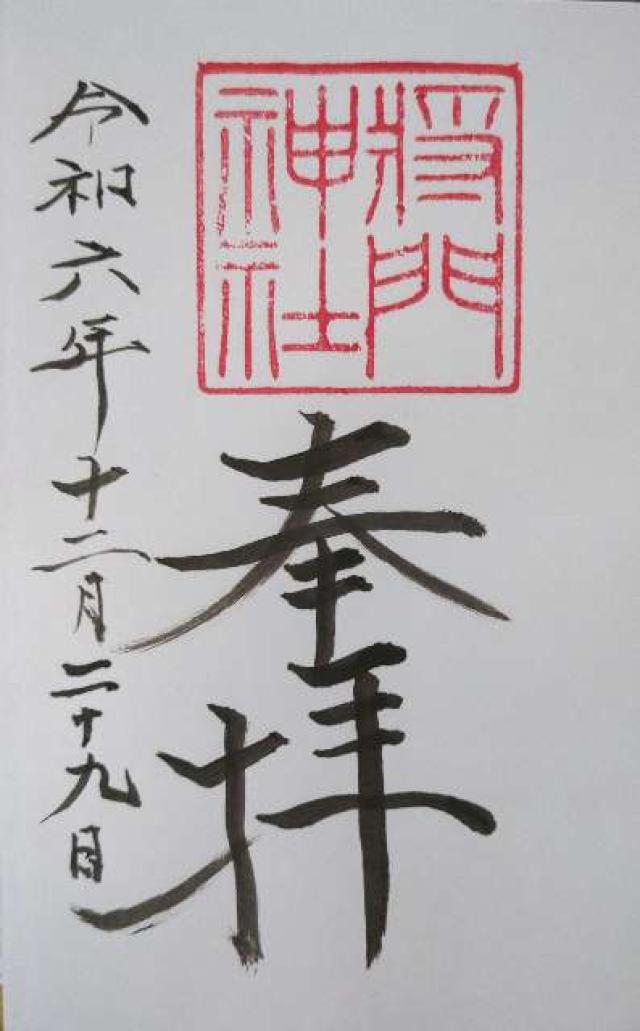 将門
神社
奉拝
令和六年十二月二十九日